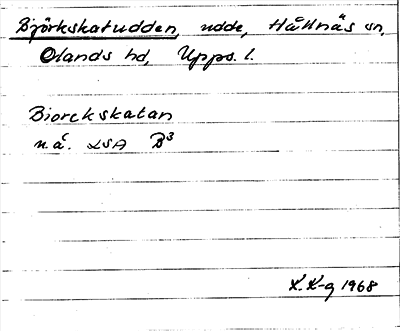 Björkskatudden, udde, Hållnäs sn,
Olands hd, Upps. l.
Biorckskatan
n å. LSA B3
K. K-g 1968